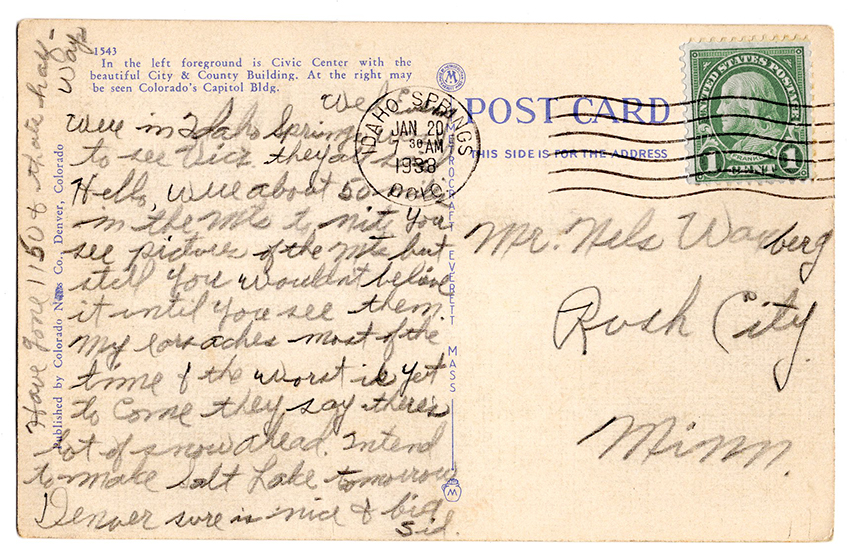 1543
In the left foreground is Civic Center with the
beautiful City & County Building. At the right may
be seen Colorado's Capitol Bldg.
were in Idaho Springs
to see
Hello, were about 50
in the Mts to nite. You
see pictures of the Mts but
still you wouldent believe
it until you see them.
My ears aches most of the
time & the worst is yet
to come they say there's
lot of snow ahead. Intend
to make Salt Lake tomorrow
Denver sure is nice & big
Sid.
Have gone 1150 & thats half-
way
Published by Colorado News Co., Denver, Colorado
METROCRAFT EVERETT MASS
M
POST CARD
THIS SIDE IS FOR THE ADDRESS
IDAHO SPRINGS
JAN 20
7 30 AM
1938
COLO.
UNITED STATES POSTAGE
FRANKLIN
1 CENT 1
Mr. Nels
Rush City
Minn.